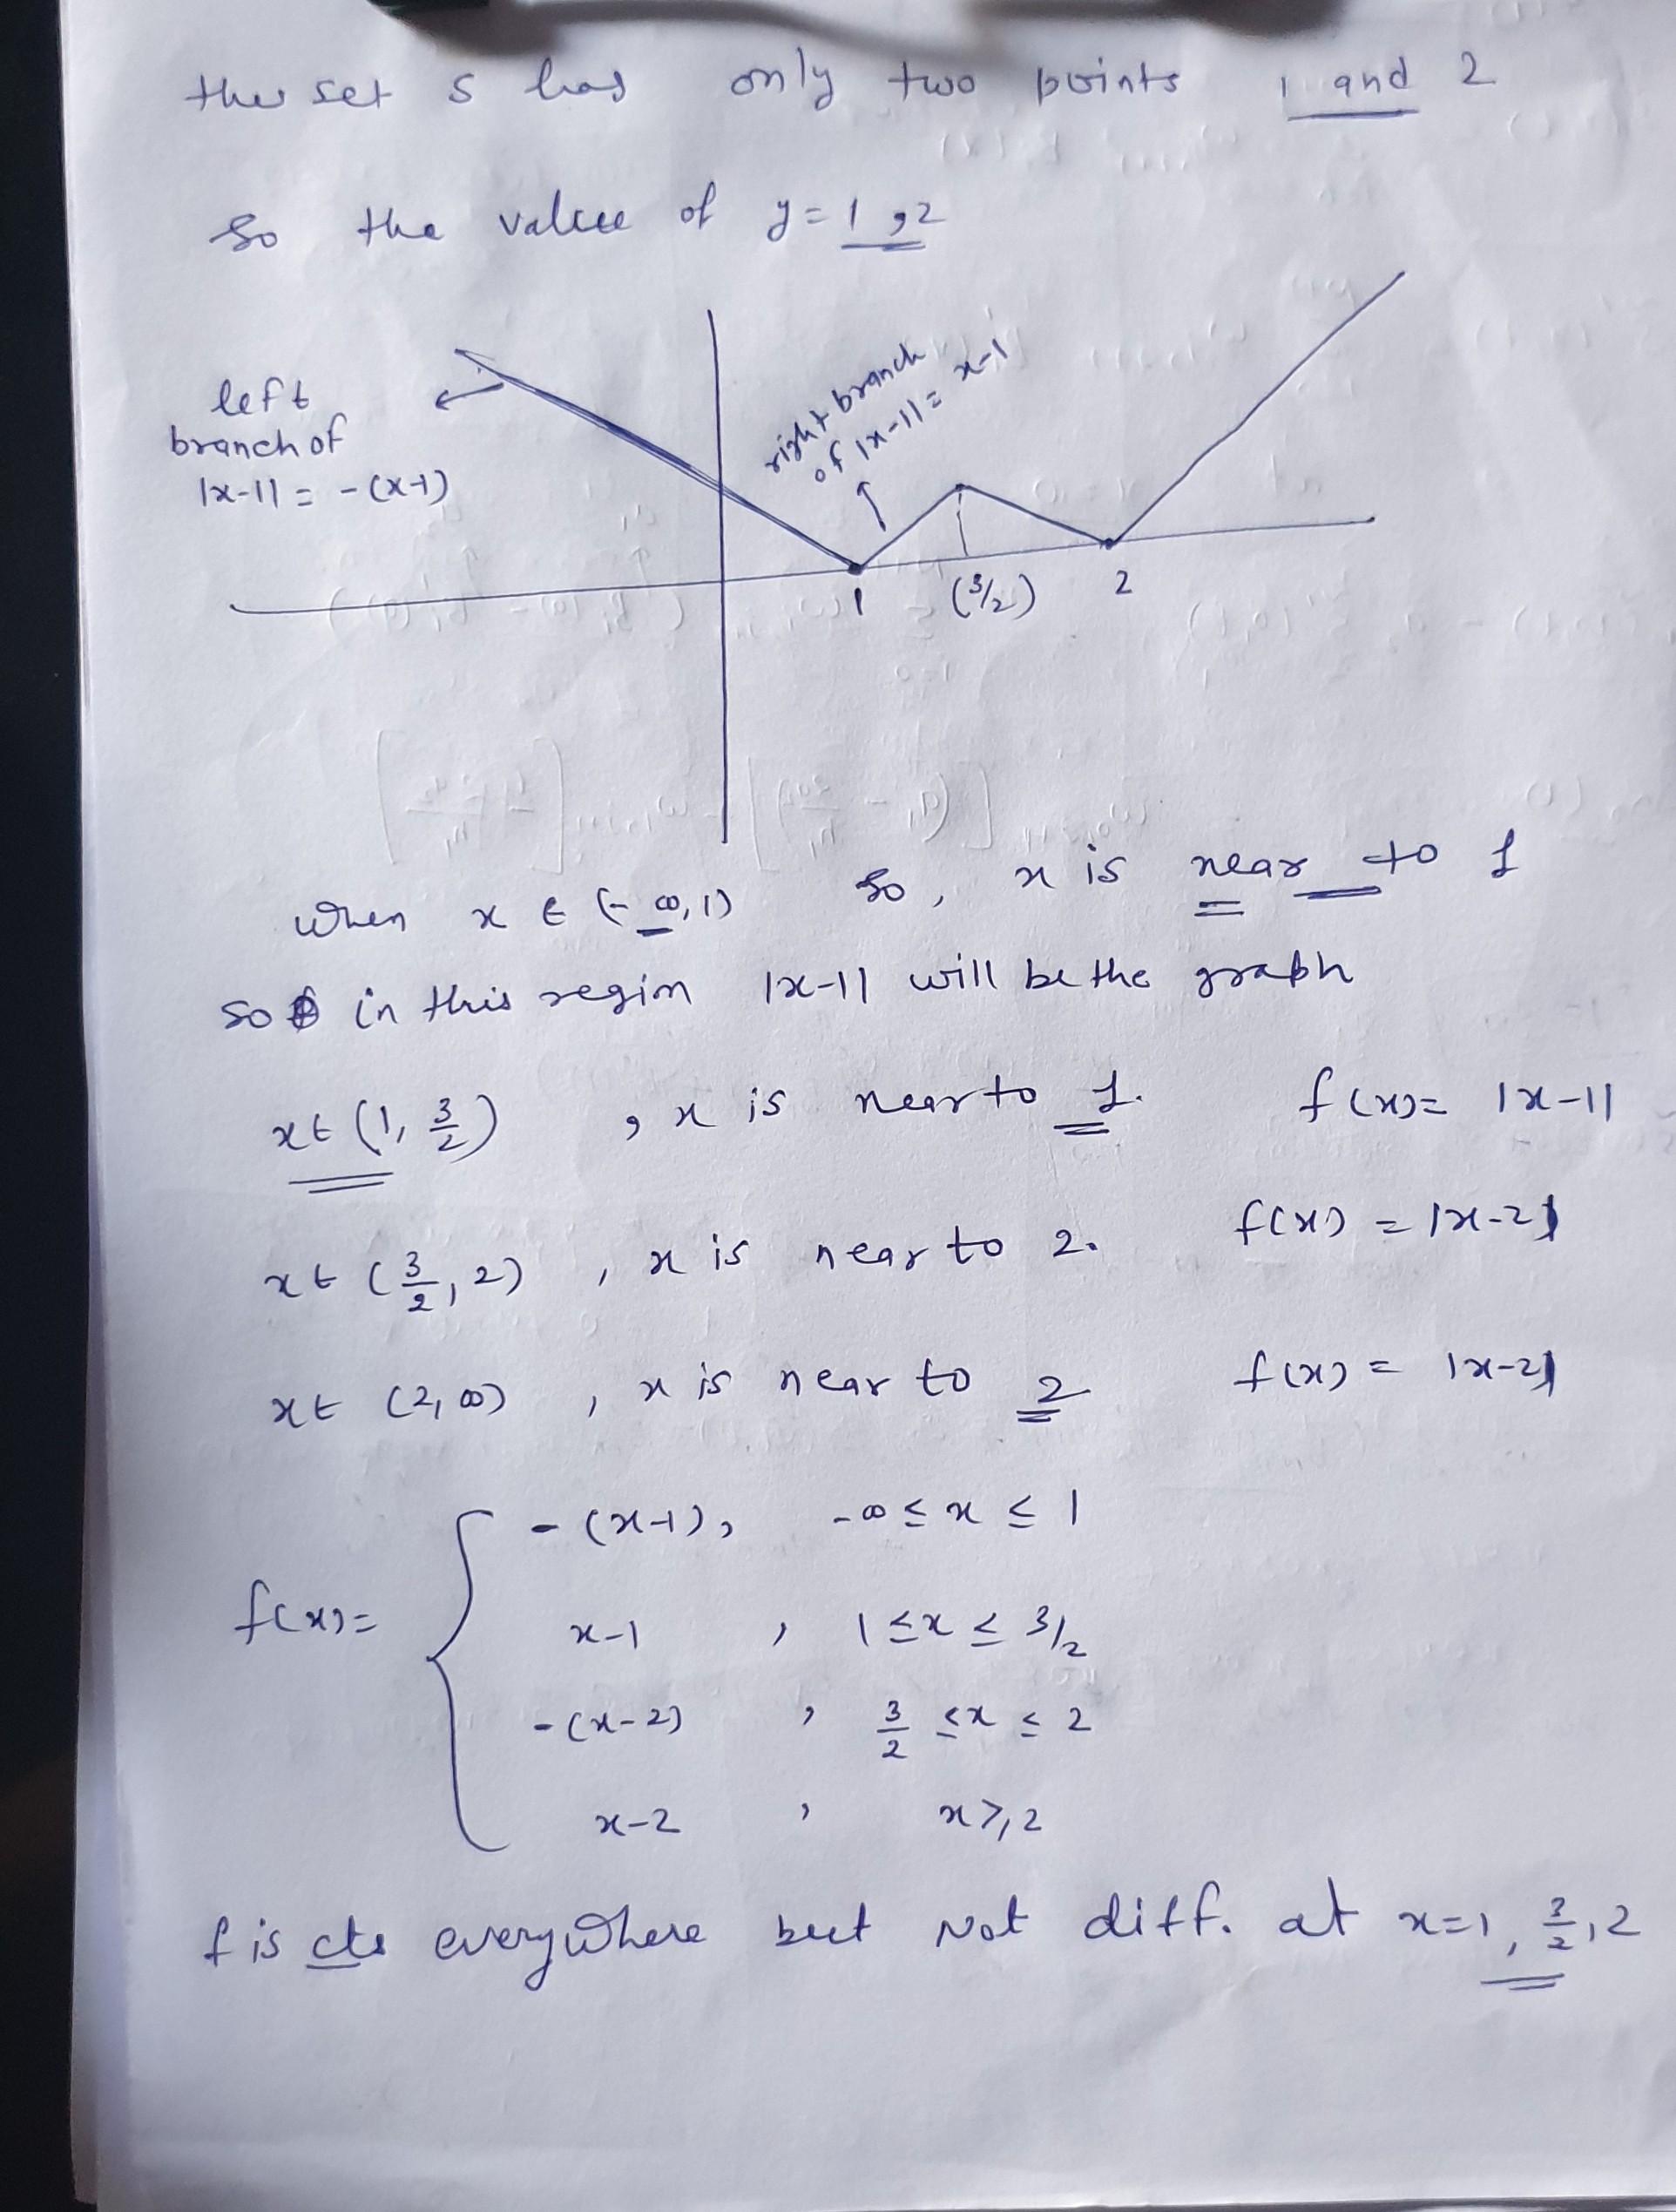 the set S has only two points 1 and 2
So the value of y = 1, 2
left
branch of
|x-1| = -(x-1)
right branch
of |x-1| = x-1
1
(3/2)
2
when x ∈ (-∞, 1) So, x is near to 1
So in this region |x-1| will be the graph
x ∈ (1, 3/2) , x is near to 1. f(x) = |x-1|
x ∈ (3/2, 2) , x is near to 2. f(x) = |x-2|
x ∈ (2, ∞) , x is near to 2 f(x) = |x-2|
f(x) = { -(x-1), -∞ ≤ x ≤ 1
x-1 , 1 ≤ x ≤ 3/2
-(x-2) , 3/2 ≤ x ≤ 2
x-2 , x ≥ 2
f is cts everywhere but Not diff. at x=1, 3/2, 2